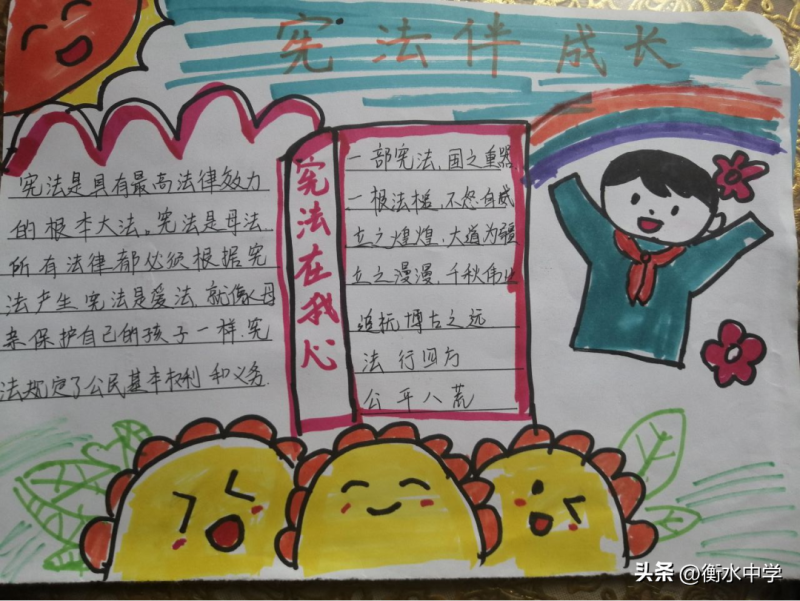 宪法伴成长
宪法是具有最高法律效力
的根本大法。宪法是母法
所有法律都必须根据宪
法产生宪法是爱法,就像父母
亲保护自己的孩子一样.宪
法规定了公民基本权利和义务.
宪法在我心
一部宪法,国之重器
一根法槌,不怒自威
立之煌煌,大道为疆
立之漫漫,千秋伟业
追抚博古之远
法行四方
公平八荒
头条@衡水中学